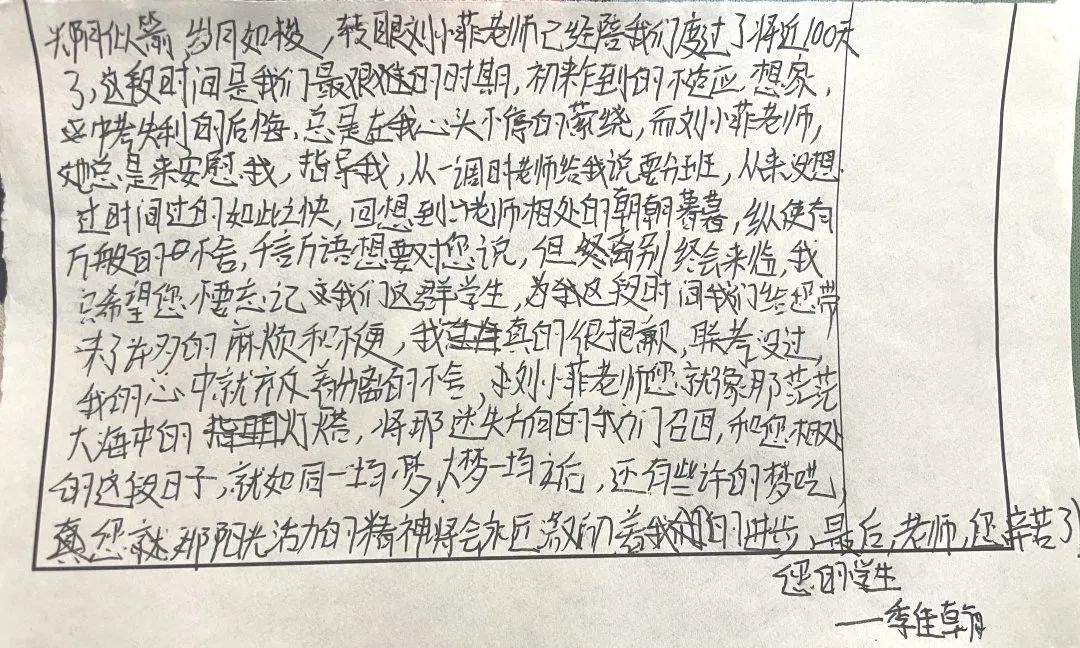 光阴似箭,岁月如梭,转眼刘小菲老师已经陪我们度过了将近100天
了,这段时间是我们最艰难的时期,初来乍到的不适应,想家,
中考失利的后悔,总是在我心头不停的萦绕,而刘小菲老师,
她总是来安慰我,指导我,从一调时老师给我说要分班,从来没想
过时间过的如此之快,回想到与老师相处的朝朝暮暮,纵使有
万般的不舍,千言万语想要对您说,但终离别终会来临,我
只希望您不要忘记我们这群学生,为我这段时间我们给您带
来了许多的麻烦和不便,我真的很抱歉,联考没过,
我的心中就充斥着分离的不舍,刘小菲老师您就像那茫茫
大海中的灯塔,将那迷失方向的我们召回,和您相处
的这段日子,就如同一场梦,大梦一场之后,还有些许的梦呓,
您就那阳光活力的精神将会永远激励着我们的进步,最后,老师,您辛苦了
您的学生
——季佳翰